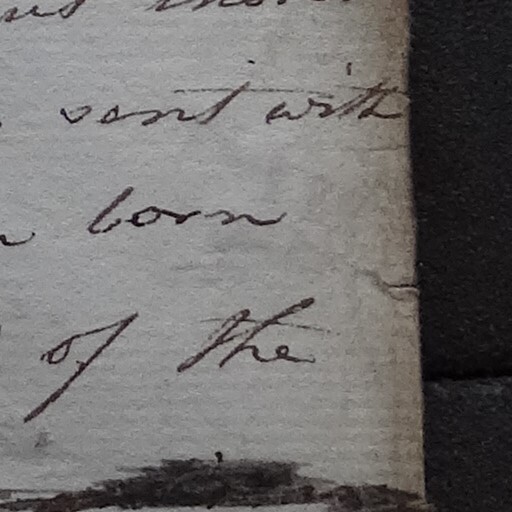 sent with
born
of the